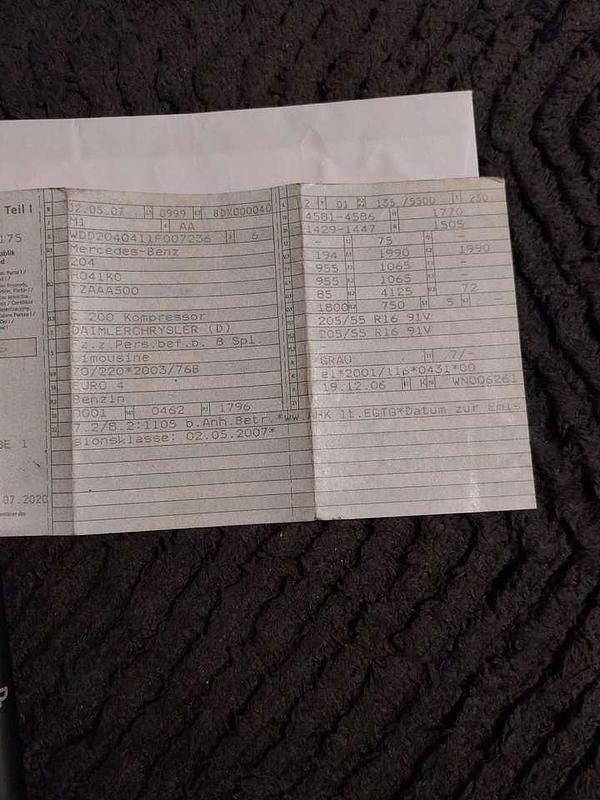 Teil I
175
BE 1
07.2020
02.05.07 0999 8DX000040
M1 AA
WDD2040411F007236 6
Mercedes-Benz
204
H041K0
YZAAA500
C 200 Kompressor
DAIMLERCHRYSLER (D)
Fz.z.Pers.bef.b. 8 Spl.
Limousine
70/220*2003/76B
EURO 4
Benzin
0001 0462 1796
7.2/8.2:1105 b.Anh.Betr.*ww.AHK lt.EGTG*Datum zur Emis
sionsklasse: 02.05.2007*
2 01 135 /5500 230
4581-4586 1770
1429-1447 1505
- 75 -
194 1990 1990
955 1065 -
955 1065 -
85 4125 72
1800 750 5 -
205/55 R16 91V
205/55 R16 91V
GRAU 7/-
e1*2001/116*0431*00
19.12.06 K WN006261